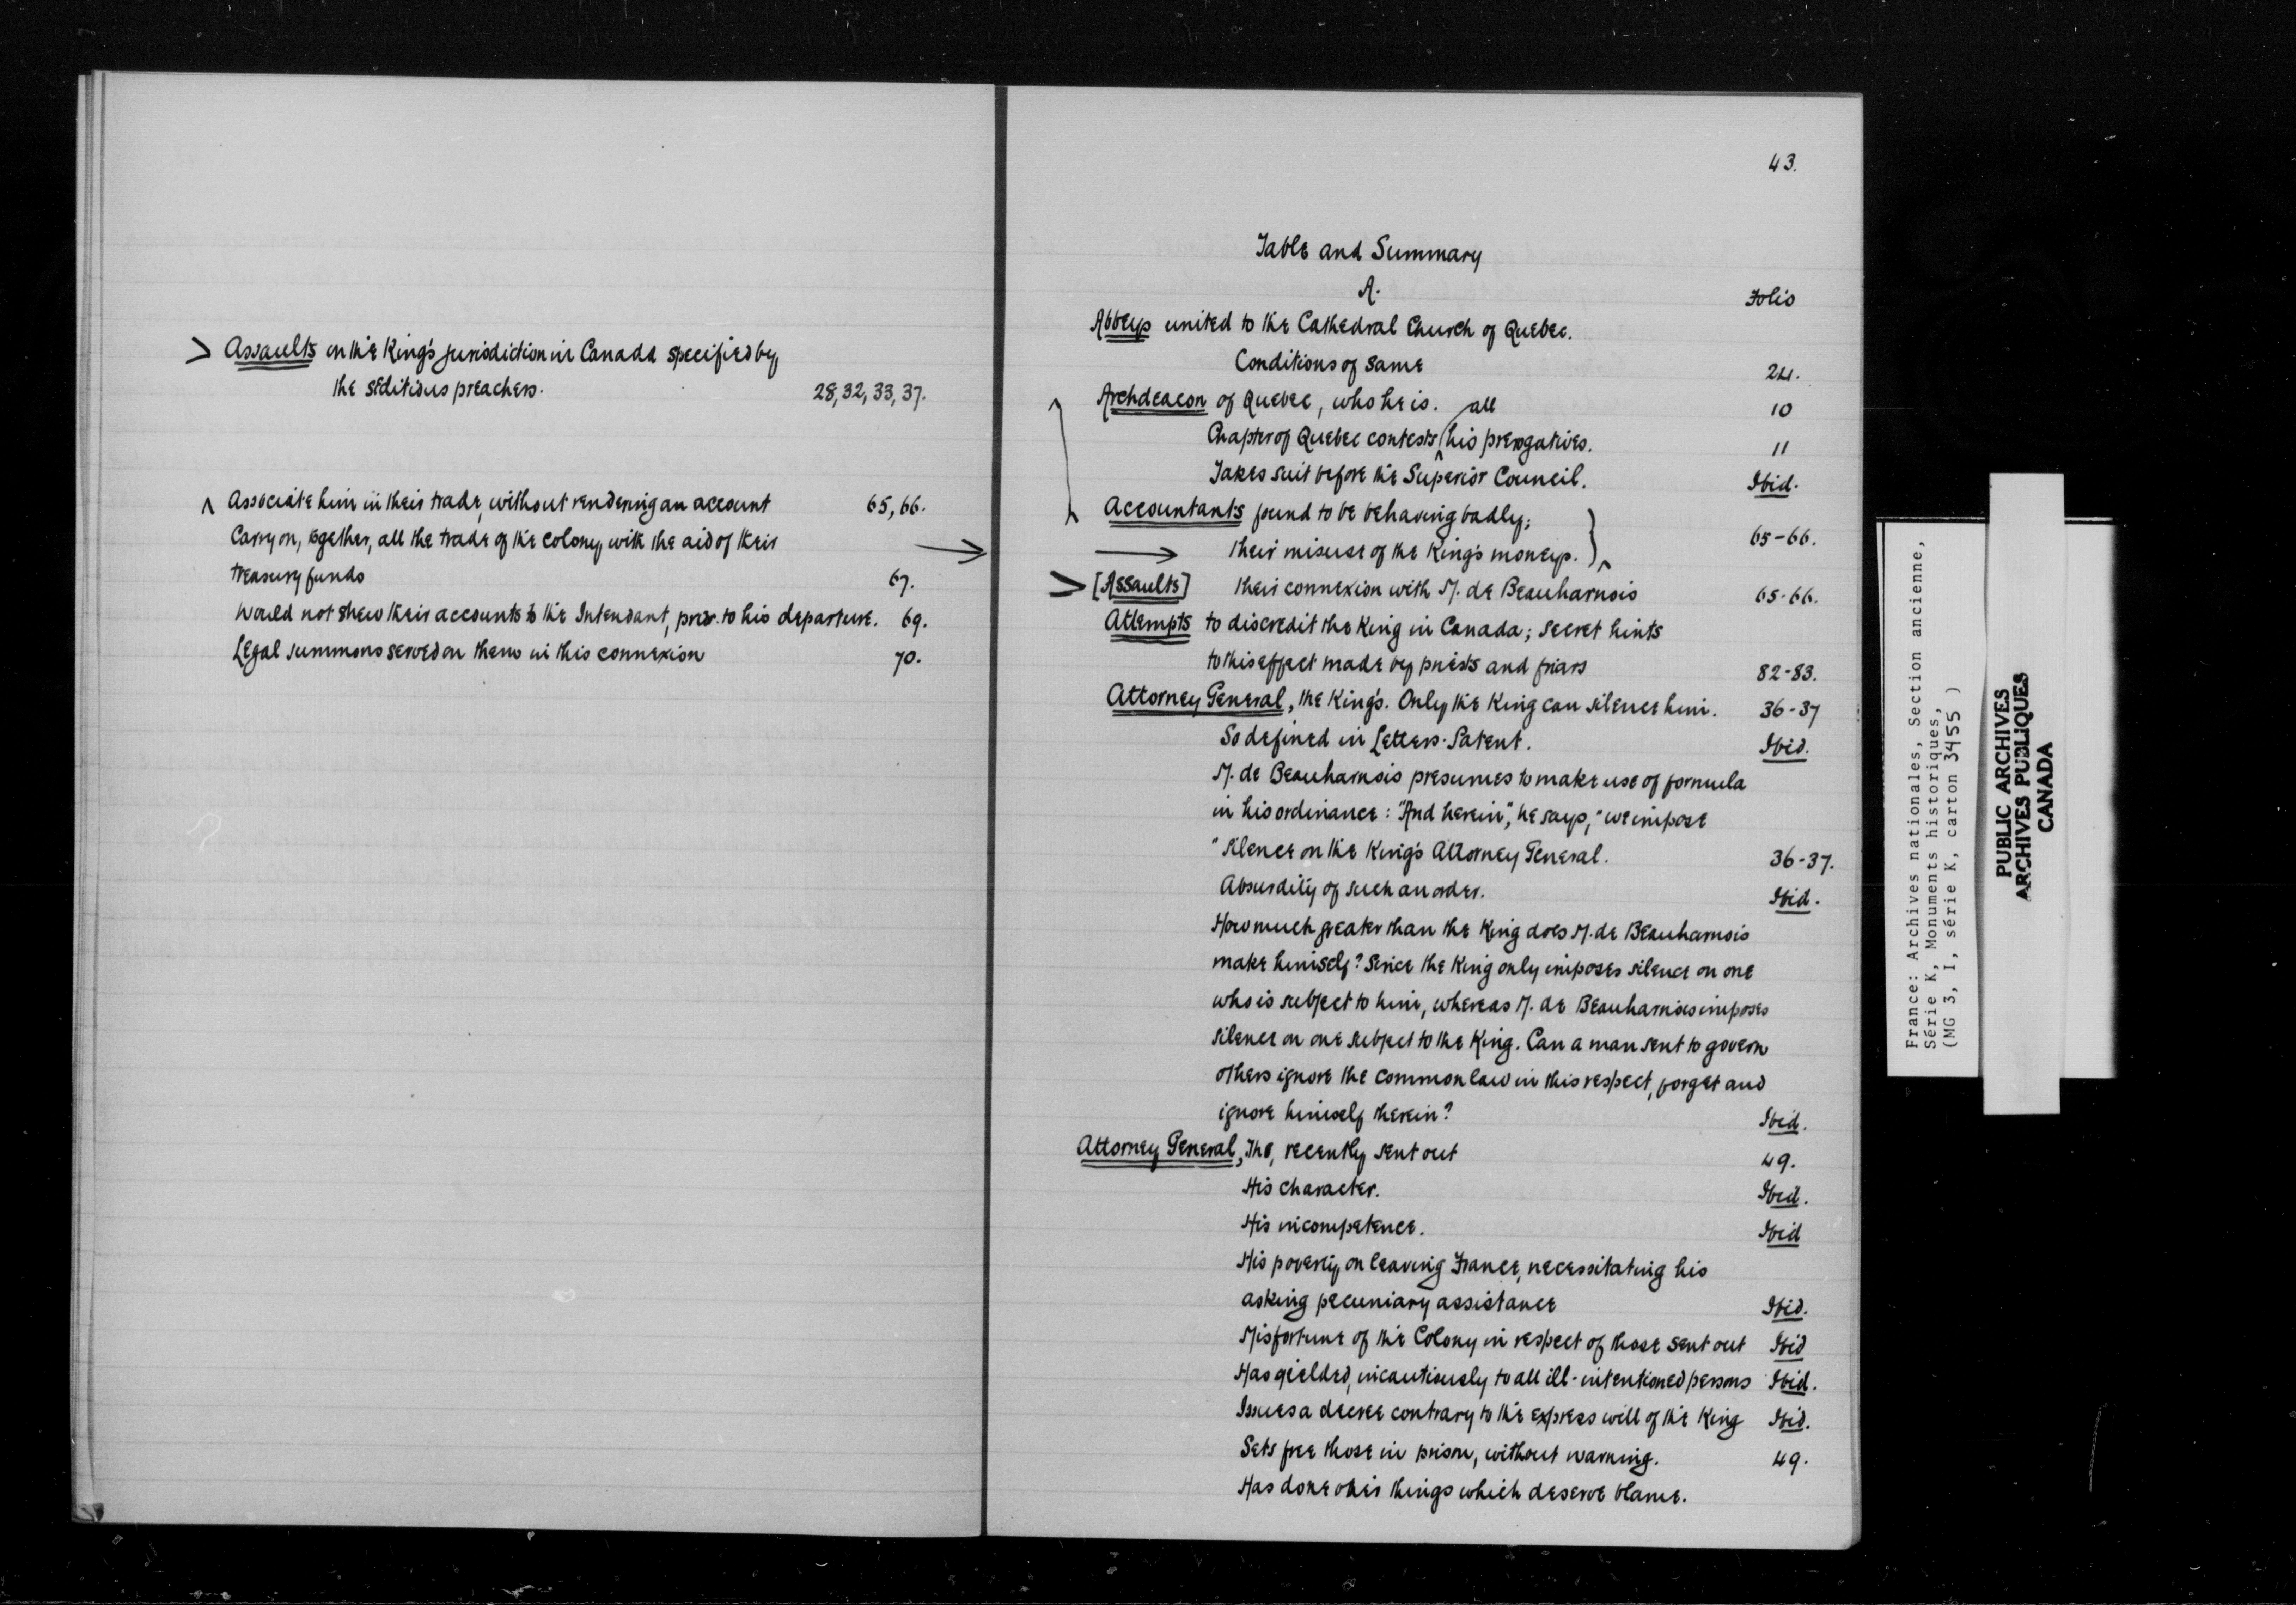 > Assaults on the King's jurisdiction in Canada specified by
the seditious preachers. 28, 32, 33, 37.
^ Associate him in their trade, without rendering an account 65, 66.
Carry on, together, all the trade of the colony with the aid of their →
treasury funds 67.
Would not shew their accounts to the Intendant, prior to his departure. 69.
Legal summons served on them in this connexion 70.
43.
Table and Summary
A. Folio
Abbeys united to the Cathedral Church of Quebec.
Conditions of same 24.
Archdeacon of Quebec, who he is. 10
all
Chapter of Quebec contests ^ his prerogatives. 11
Takes suit before the Superior Council. Ibid.
Accountants found to be behaving badly;
→ their misuse of the King's moneys. } ^ 65-66.
> [Assaults] their connexion with M. de Beauharnois 65-66.
Attempts to discredit the King in Canada; secret hints
to this effect made by priests and friars 82-83.
Attorney General, the King's. Only the King can silence him. 36-37
So defined in Letters-Patent. Ibid.
M. de Beauharnois presumes to make use of formula
in his ordinance: "And herein", he says, "we impose
"silence on the King's Attorney General. 36-37.
Absurdity of such an order. Ibid.
How much greater than the King does M. de Beauharnois
make himself? Since the King only imposes silence on one
who is subject to him, whereas M. de Beauharnois imposes
silence on one subject to the King. Can a man sent to govern
others ignore the common law in this respect, forget and
ignore himself therein? Ibid.
Attorney General, The, recently sent out 49.
His character. Ibid.
His incompetence. Ibid
His poverty on leaving France, necessitating his
asking pecuniary assistance Ibid.
Misfortune of the Colony in respect of those sent out Ibid
Has yielded, incautiously to all ill-intentioned persons Ibid.
Issues a decree contrary to the express will of the King Ibid.
Sets free those in prison, without warning. 49.
Has done other things which deserve blame.
France: Archives nationales, Section ancienne,
Série K, Monuments historiques,
(MG 3, I, série K, carton 3455 )
PUBLIC ARCHIVES
ARCHIVES PUBLIQUES
CANADA